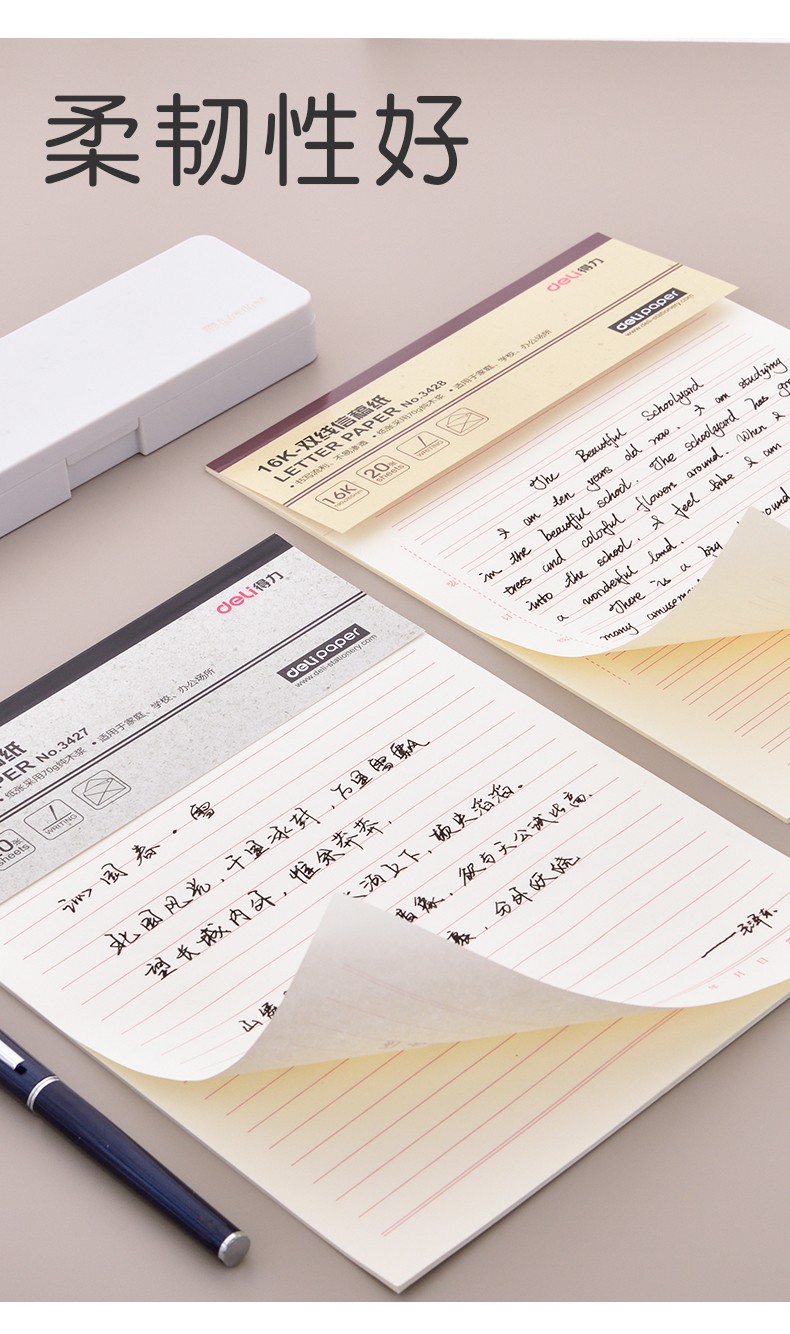 柔韧性好
deli得力
deli paper
www.deli-stationery.com
16K-双线信稿纸
LETTER PAPER No.3428
• 书写流利、不易渗透 • 纸张采用70g纯木浆 • 适用于家庭、学校、办公场所
16K
20张
sheets
WRITING
The Beautiful Schoolyard
I am ten years old now. I am studying
in the beautiful school. The schoolyard has
trees and colorful flowers around. When I
into the school, I feel like I am
a wonderful land.
There is a big
many
装
订
deli得力
deli paper
www.deli-stationery.com
纸
PER No.3427
纸张采用70g纯木浆 • 适用于家庭、学校、办公场所
0张
sheets
WRITING
沁园春·雪
北国风光,千里冰封,万里雪飘
望长城内外,惟余莽莽,
大河上下,顿失滔滔。
欲与天公试比高.
分外妖娆
——毛泽东.
年 月 日